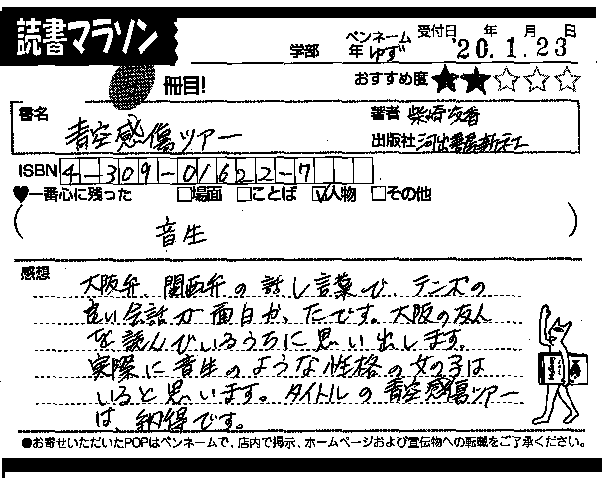 読書マラソン
学部 年 ペンネーム ゆず 受付日 '20年1月23日
冊目! おすすめ度 ★★☆☆☆
書名 青空感傷ツアー
著者 柴崎友香
出版社 河出書房新社
ISBN 4-309-01622-7
♥一番心に残った □場面 □ことば ☑人物 □その他
( 音生 )
感想
大阪弁、関西弁の話し言葉で、テンポの
良い会話が面白かったです。大阪の友人
を読んでいるうちに思い出します。
実際に音生のような性格の女の子は
いると思います。タイトルの青空感傷ツアー
は、納得です。
●お寄せいただいたPOPはペンネームで、店内で掲示、ホームページおよび宣伝物への転載をご了承ください。